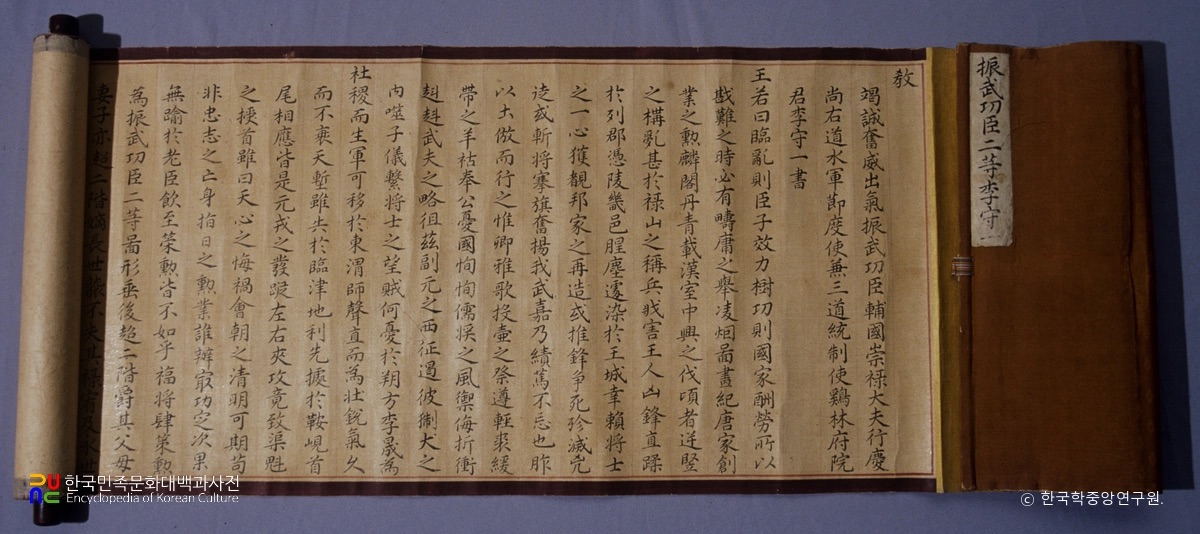 振武功臣二等李守一
敎
竭誠奮威出氣振武功臣輔國崇祿大夫行慶
尚右道水軍節度使兼三道統制使鷄林府院
君李守一書
王若曰臨亂則臣子效力樹功則國家酬勞所以
戡難之時必有疇庸之舉凌烟啚畫紀唐家創
業之勲麟閣丹青載漢室中興之伐頃者逆竪
之構亂甚於禄山之稱兵戕害王人凶鋒直蹂
於列郡憑陵畿邑腥塵遽染於王城幸賴將士
之一心獲覩邦家之再造或推鋒争死殄滅兇
逆或斬将搴旗奮揚我武嘉乃績篤不忘也胙
以土倣而行之惟卿雅歌投壷之祭遵輕裘緩
帶之羊祜奉公憂國恂恂儒將之風禦侮折衝
赳赳武夫之略徂玆副元之西征遏彼猘犬之
内噬子儀繫將士之望賊何憂於朔方李晟為
社稷而生軍可移於東渭師聲直而為壮銳氣久
而不衰天塹雖共於臨津地利先據於鞍峴首
尾相應皆是元戎之發蹤左右夾攻竟致渠魁
之授首雖曰天心之悔禍會朝之清明可期苟
非忠志之亡身指日之勲業誰辦㝡功定次果
無踰於老臣飲至策勲皆不如乎福將肆策勲
為振武功臣二等啚形垂後超二階爵其父母
妻子亦超二階嫡長世襲不失其祿宥及
한국민족문화대백과사전
Encyclopedia of Korean Culture
© 한국학중앙연구원.